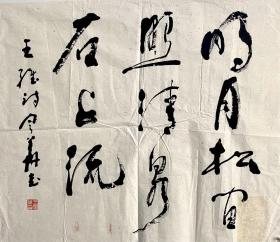 明月松间
照清泉
石上流
王维诗